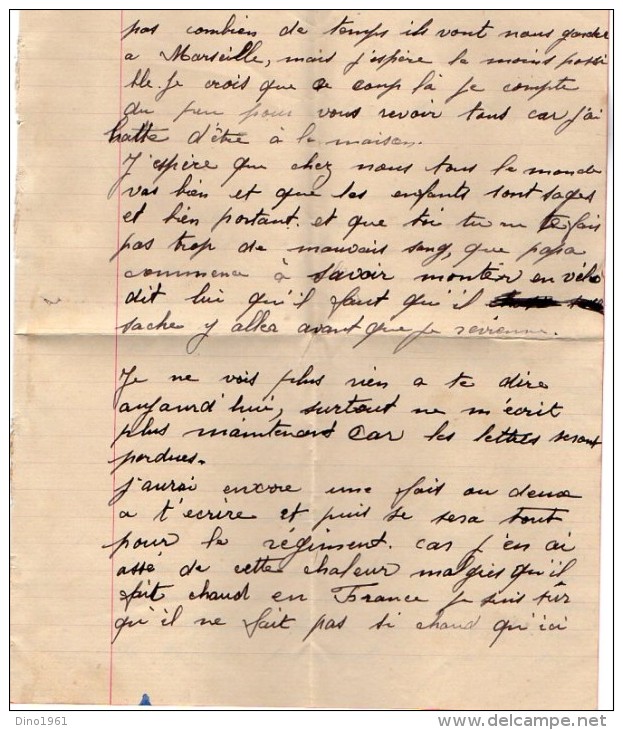 pas combien de temps ils vont nous garder
a Marseille, mais j'espère le moins possi
ble. Je crois que ce coup là je compte
du peu pour vous revoir tous car j'ai
hatte d'être à la maison.
J'espère que chez nous tous le monde
vas bien et que les enfants sont sages
et bien portant. et que toi tu ne te fais
pas trop de mauvais sang, que papa
commence à savoir monter en vélo
dit lui qu'il faut qu'il
sache y aller avant que je revienne.
Je ne vois plus rien a te dire
aujourd'hui, surtout ne m'écrit
plus maintenant car les lettres seront
perdues.
j'aurai encore une fois ou deux
a t'écrire et puis se sera tout
pour le régiment. car j'en ai
assé de cette chaleur malgrés qu'il
fait chaud en France je suis sûr
qu'il ne fait pas si chaud qu'ici
Dino1961
www.delcampe.net